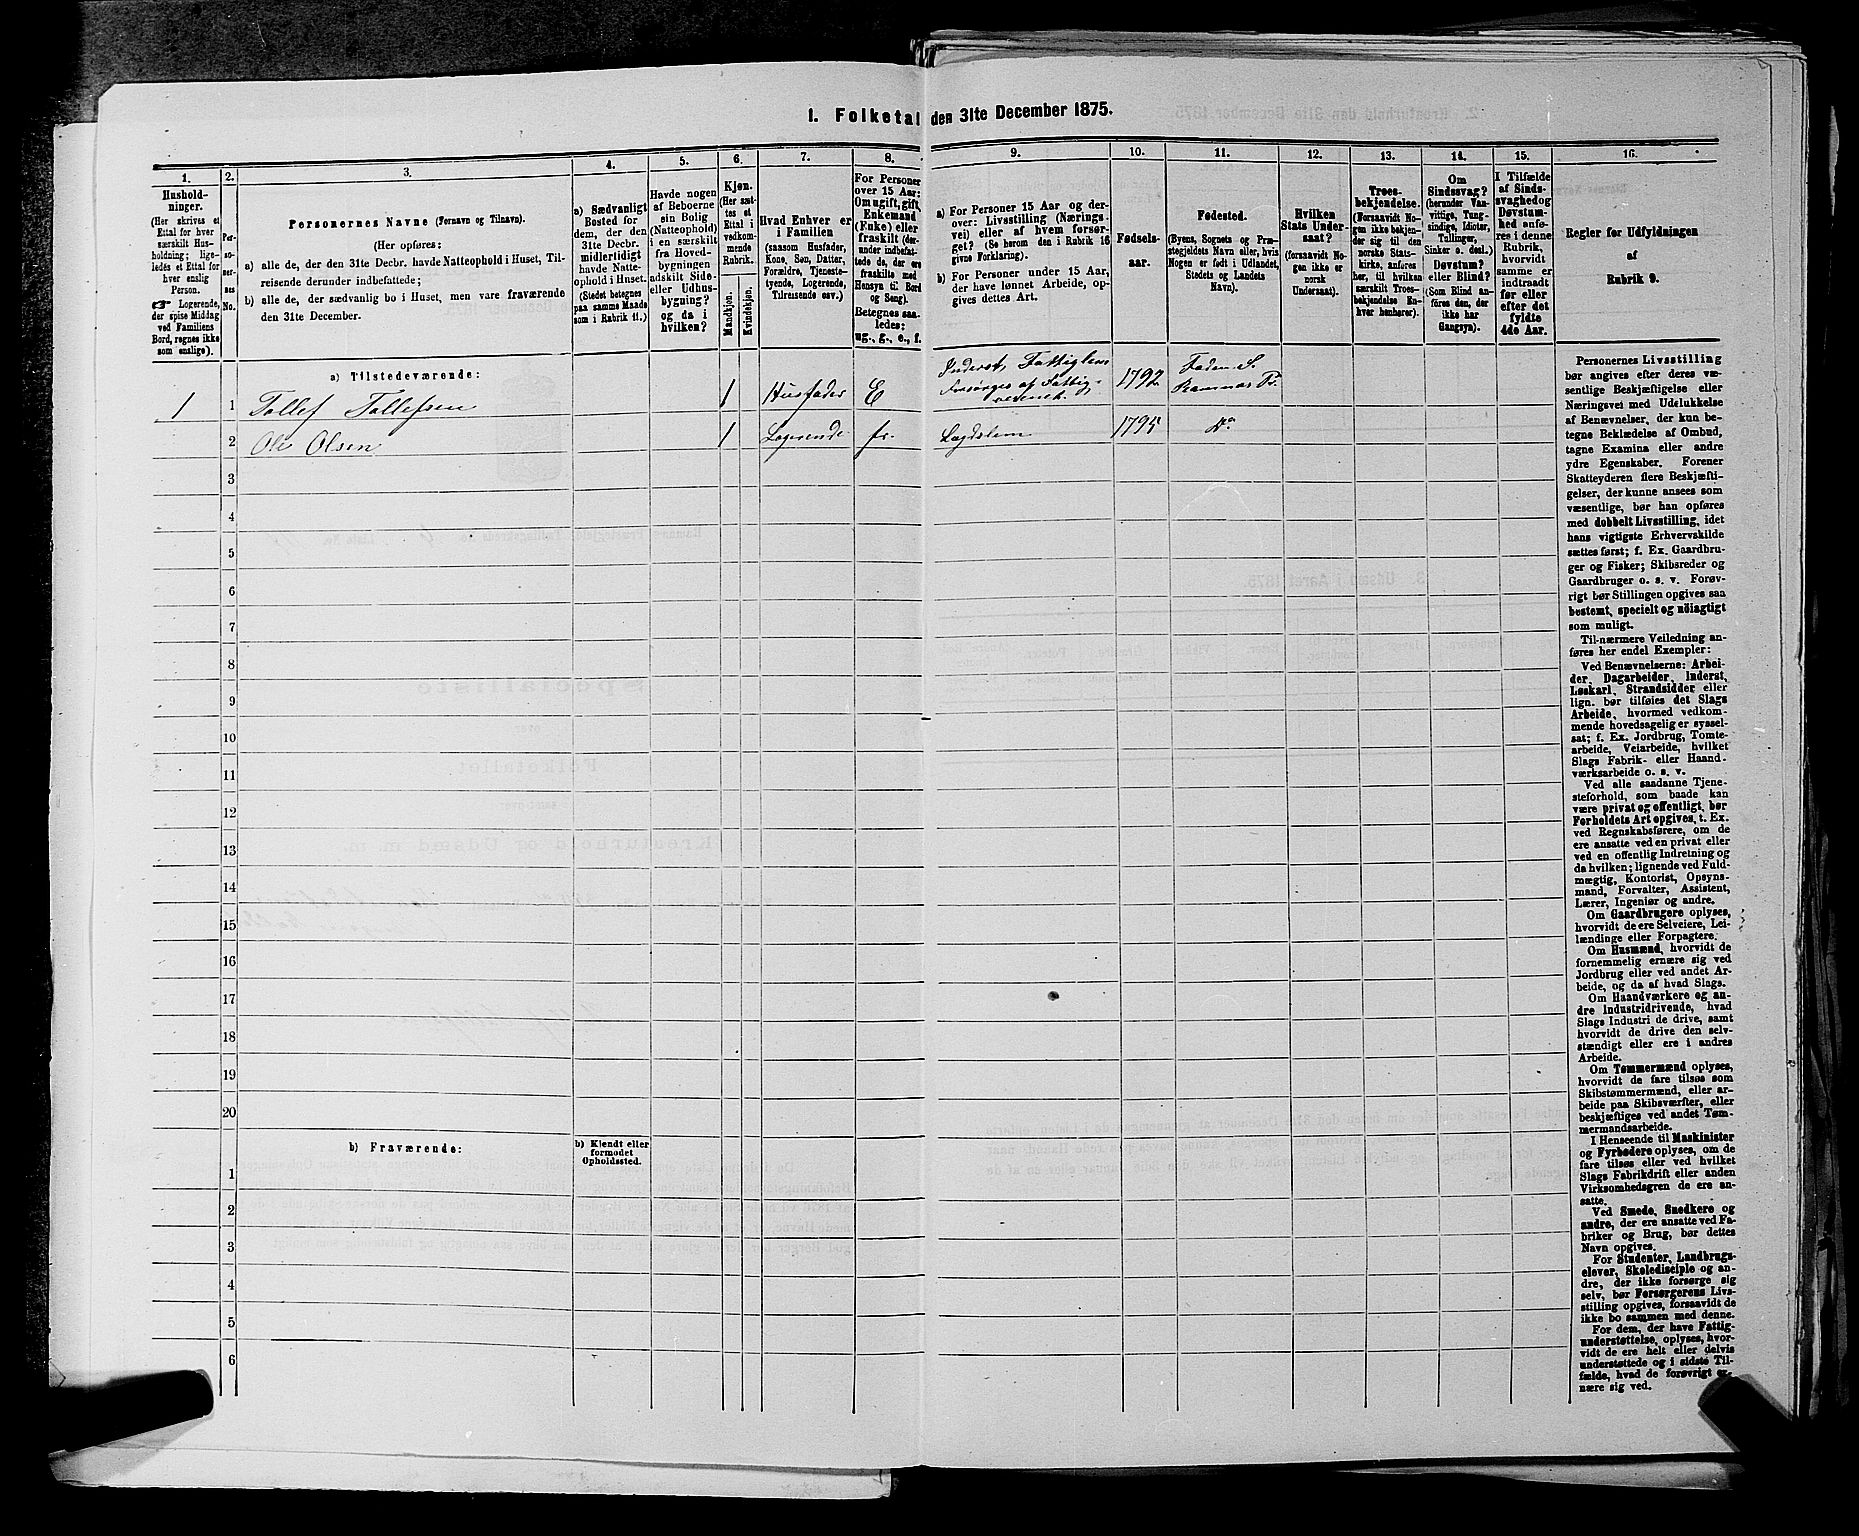 1. Folketal den 31te December 1875.
1.
2.
3.
4.
5.
6.
7.
8.
9.
10.
11.
12.
13.
14.
15.
16.
Hushold-
ninger.
(Her skrives et
Ettal for hver
særskilt Hus-
holdning; lige-
ledes et Ettal for
hver enslig
Person.
☞ Logerende,
der spise Middag
ved Familiens
Bord, regnes ikke
som enslige).
Per-
so-
ner-
nes
No.
Personernes Navne (Fornavn og Tilnavn).
(Her opføres:
a) alle de, der den 31te Decbr. havde Natteophold i Huset, Til-
reisende derunder indbefattede;
b) alle de, der sædvanlig bo i Huset, men vare fraværende
den 31te December.
a) Sædvanligt
Bosted for
dem, der den
31te Decbr.
midlertidigt
havde Natte-
ophold i Huset.
(Stedet betegnes
paa samme Maade
som i Rubrik 11.)
Havde nogen
af Beboerne
sin Bolig
(Natteophold)
i en særskilt
fra Hoved-
bygningen
adskilt Side-
eller Udhus-
bygning?
og da i
hvilken?
Kjøn.
(Her sæt-
tes et
Ettal i
vedkom-
mende
Rubrik.
Mandkjøn.
Kvindekjøn.
Hvad Enhver er
i Familien
(saasom Husfader,
Kone, Søn, Datter,
Forældre, Tjeneste-
tyende, Logerende,
Tilreisende osv.)
For Personer
over 15 Aar:
Om ugift, gift,
Enkemand
(Enke) eller
fraskilt (der-
under indbefat-
tede de, der ere
fraskilte med
Hensyn til Bord
og Seng).
Betegnes saa-
ledes:
ug., g., e., f.
a) For Personer 15 Aar og der-
over: Livsstilling (Nærings-
vei) eller af hvem forsør-
get? (Se herom den i Rubrik 16
givne Forklaring).
b) For Personer under 15 Aar,
der have lønnet Arbeide, op-
gives dettes Art.
Fødsels-
aar.
Fødested.
(Byens, Sognets og Præ-
stegjeldets Navn eller, hvis
Nogen er født i Udlandet,
Stedets og Landets
Navn).
Hvilken
Stats Under-
saat?
(forsaavidt No-
gen ikke er
norsk
Undersaat).
Troes-
bekjendelse.
(Forsaavidt No-
gen ikke bekjen-
der sig til den
norske Stats-
kirke, anføres
her, til hvilken
særskilt Troes-
bekjendelse En-
hver henhører).
Om
Sindssvag?
(herunder Van-
vittige, Tung-
sindige, Idioter,
Tullinger,
Sinker o. desl.)
Døvstum?
eller Blind?
(Som Blind an-
føres den, der
ikke har
Gangsyn).
I Tilfælde
af Sinds-
svaghed og
Døvstum-
hed anfø-
res i denne
Rubrik,
hvorvidt
samme er
indtraadt
før eller
efter det
fyldte
4de Aar.
Regler for Udfyldningen
af
Rubrik 9.
a) Tilstedeværende:
1 1 Tollef Tollefsen 1 Husfader E Inderst, Fattiglem Forsørges af Fattig- 1792 Foden S. Ramnæs Pr.
2 Ole Olsen 1 Logerende fr. Lægdslem 1795 Do
3
4
5
6
7
8
9
10
11
12
13
14
15
16
17
18
19
20
b) Fraværende:
b) Kjendt eller
formodet
Opholdssted.
1
2
3
4
5
6
Personernes Livsstilling
bør angives efter deres væ-
sentlige Beskjæftigelse eller
Næringsvei med Udelukkelse
af Benævnelser, der kun be-
tegne Beklædelse af Ombud,
tagne Examina eller andre
ydre Egenskaber. Forener
Skatteyderen flere Beskjæfti-
gelser, der kunne ansees som
væsentlige, bør han opføres
med dobbelt Livsstilling, idet
hans vigtigste Erhvervskilde
sættes først; f. Ex. Gaardbru-
ger og Fisker; Skibsreder og
Gaardbruger o. s. v. Forøv-
rigt bør Stillingen opgives saa
bestemt, specielt og nöiagtigt
som muligt.
Til nærmere Veiledning an-
føres her endel Exempler:
Ved Benævnelserne: Arbei-
der, Dagarbeider, Inderst,
Løskarl, Strandsidder eller
lign. bør tilføies det Slags
Arbeide, hvormed vedkom-
mende hovedsagelig er syssel-
sat; f. Ex. Jordbrug, Tomte-
arbeide, Veiarbeide, hvilket
Slags Fabrik- eller Haand-
værksarbeide o. s. v.
Ved alle saadanne Tjene-
steforhold, som baade kan
være privat og offentligt, bør
Forholdets Art opgives, t. Ex.
ved Regnskabsførere, om de
ere ansatte ved en privat eller
ved en offentlig Indretning og
da hvilken; lignende ved Fuld-
mægtig, Kontorist, Opsyns-
mand, Forvalter, Assistent,
Lærer, Ingeniør og andre.
Om Gaardbrugere oplyses,
hvorvidt de ere Selveiere, Lei-
lændinge eller Forpagtere.
Om Husmænd, hvorvidt de
fornemmelig ernære sig ved
Jordbrug eller ved andet Ar-
beide, og da af hvad Slags.
Om Haandværkere og an-
dre Industridrivende, hvad
Slags Industri de drive, samt
hvorvidt de drive den selv-
stændigt eller ere i andres
Arbeide.
Om Tømmermænd oplyses,
hvorvidt de fare tilsøs som
Skibstømmermænd, eller ar-
beide paa Skibsværfter, eller
beskjæftiges ved andet Tøm-
mermandsarbeide.
I Henseende til Maskinister
og Fyrbødere oplyses, om de
fare tilsøs eller ved hvilket
Slags Fabrikdrift eller anden
Virksomhedsgren de ere an-
satte.
Ved Smede, Snedkere og
andre, der ere ansatte ved Fa-
briker og Brug, bør dettes
Navn opgives.
For Studenter, Landbrugs-
elever, Skoledisciple og an-
dre, der ikke forsørge sig
selv, bør Forsørgerens Livs-
stilling opgives, forsaavidt de
ikke bo sammen med denne.
For dem, der have Fattig-
understøttelse, oplyses, hvor-
vidt de ere helt eller delvis
understøttede og i sidste Til-
fælde, hvad de forøvrigt er-
nære sig ved.